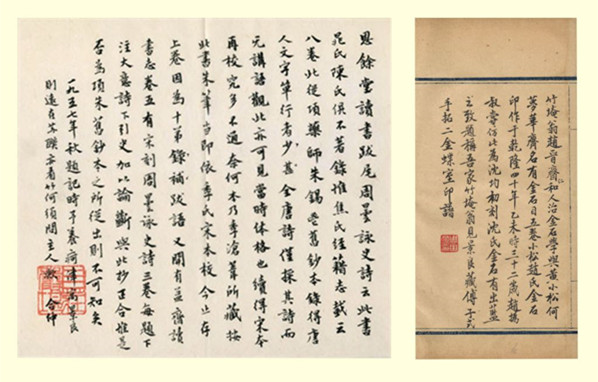 恩餘堂讀書跋尾周曇詠史詩云此書
晁氏陳氏俱不著錄惟焦氏經籍志載云
八卷此從項藥師朱錫鬯舊鈔本錄得唐
人文字單行者少甚全唐詩僅採其詩而
元講語觀此亦可見當時體格也續得宋本
再校究多不通奈何本乃季滄葦所藏按
此書朱筆當即依季氏宋本校今止存
上卷因為十第錄補跋語又開有益齋讀
書志卷五有宋刻周曇詠史詩三卷每題下
注大意詩下引史加以論斷與此抄正合惟是
否為項朱舊鈔本之所從出則不可知矣
一九五七年秋題記時予養疴津寓景良
則遠在蘇聯亦看竹何須問主人歟
竹崦翁趙晉齋和人治金石學與黃小松何
夢華齊名有金石目五卷小松趙氏金石
印作于乾隆四十年乙未時三十二歲趙撝
叔嘗仿此為沈均初刻沈氏金石有出藍
之致題稱吾家竹崦翁見景良藏傅子式
手拓二金蜨室印譜